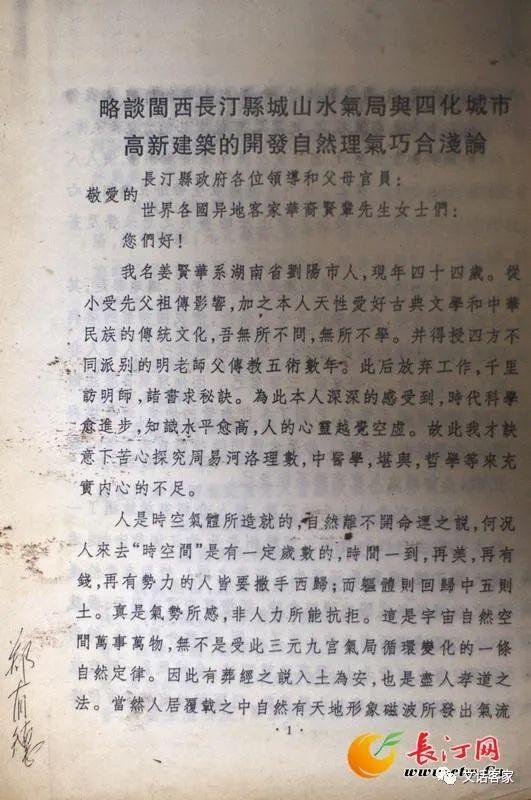 略談閩西長汀縣城山水氣局與四化城市
高新建築的開發自然理氣巧合淺論
敬愛的
長汀縣政府各位領導和父母官員：
世界各國异地客家華裔賢輩先生女士們：
您們好！
我名姜賢華系湖南省劉陽市人，現年四十四歲。從
小受先父祖傳影響，加之本人天性愛好古典文學和中華
民族的傳統文化，吾無所不問，無所不學。并得授四方不
同派别的明老師父傳教五術數年。此后放弃工作，千里
訪明師，諸書求秘訣。為此本人深深的感受到，時代科學
愈進步，知識水平愈高，人的心靈越覺空虛。故此我才訣
意下苦心探究周易河洛理數，中醫學，堪與，哲學等來充
實内心的不足。
人是時空氣體所造就的，自然離不開命運之説，何况
人來去“時空間”是有一定歲數的，時間一到，再美，再有
錢，再有勢力的人皆要撇手西歸；而軀體則回歸中五則
土。真是氣勢所感，非人力所能抗拒。這是宇宙自然空
間萬事萬物，無不是受此三元九宫氣局循環變化的一條
自然定律。因此有葬經之説入土為安，也是盡人孝道之
法。當然人居覆載之中自然有天地形象磁波所發出氣流
·1·
鄭有德
長汀网
www.ctw.cn
文话客家